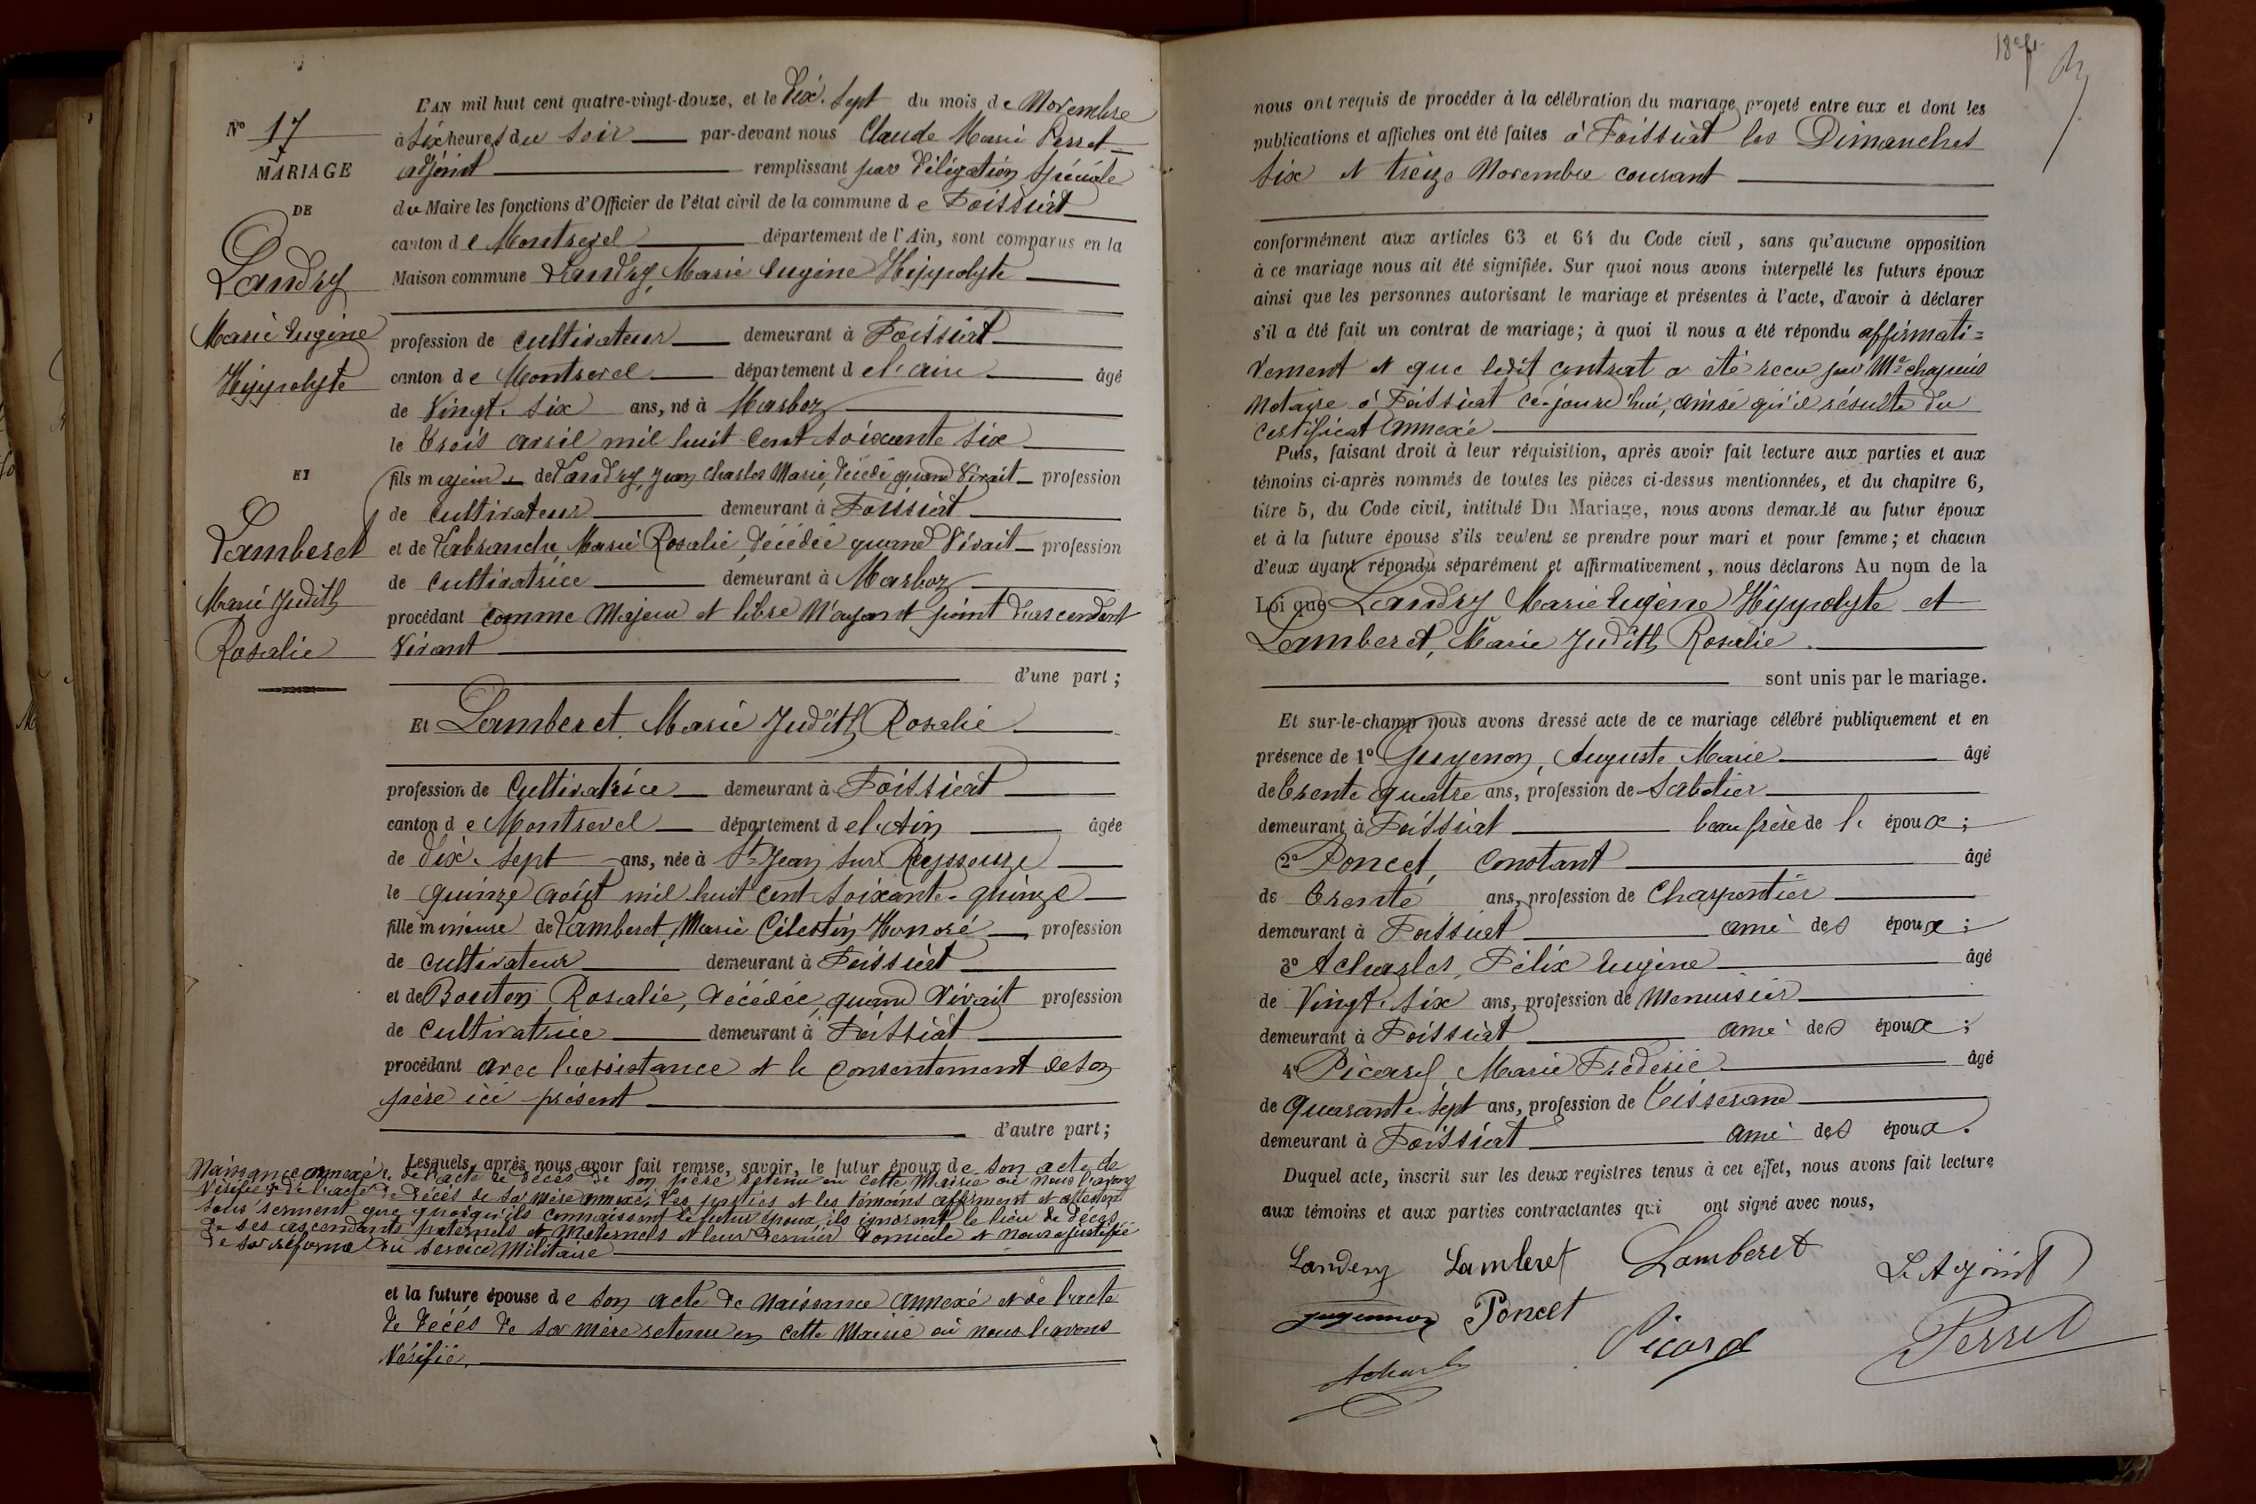 L'AN mil huit cent quatre-vingt-douze, et le Dix-Sept du mois de Novembre
N° 17
à Six heures du Soir par-devant nous Claude Marie Perret
MARIAGE
adjoint remplissant par délégation spéciale
DE
du Maire les fonctions d'Officier de l'état civil de la commune de Foissiat
canton de Montrevel département de l'Ain, sont comparus en la
Landry
Maison commune Landry, Marie Eugène Hippolyte
Marie Eugène
profession de cultivateur demeurant à Foissiat
Hippolyte
canton de Montrevel département de l'ain âgé
de Vingt-Six ans, né à Marboz
le Trois avril mil huit Cent Soixante Six
ET
fils majeur de Landry, Jean Charles Marie, décédé quand Vivait profession
de cultivateur demeurant à Foissiat
Lamberet
et de Labranche Marie Rosalie décédée quand Vivait profession
de cultivatrice demeurant à Marboz
Marie Judith
procédant comme Majeur et libre N'ayant point d'ascendant
Rosalie
Vivant
d'une part ;
ET Lamberet, Marie Judith Rosalie
profession de Cultivatrice demeurant à Foissiat
canton de Montrevel département de l'Ain âgée
de dix-Sept ans, née à St Jean Sur Reyssouze
le quinze août mil huit cent Soixante-quinze
fille mineure de Lamberet, Marie Célestin Honoré profession
de cultivateur demeurant à Foissiat
et de Bouton Rosalie, décédée, quand Vivait profession
de cultivatrice demeurant à Foissiat
procédant avec l'assistance et le consentement de son
père ici présent
d'autre part ;
Lesquels, après nous avoir fait remise, savoir, le futur époux de son acte de
Naissance annexé, de l'acte de décès de son père retenu en cette Mairie où nous l'avons
Vérifié & de l'acte de décès de sa mère annexé, Les parties et les témoins affirment et attestent
sous serment que quoiqu'ils connaissent le futur époux, ils ignorent le lieu de décès
de ses ascendants paternels et Maternels et leur dernier domicile et nous a justifié
de sa réforme du service Militaire
et la future épouse de son acte de Naissance annexé et de l'acte
de décès de sa mère retenu en cette Mairie où nous l'avons
Vérifié.
18
nous ont requis de procéder à la célébration du mariage projeté entre eux et dont les
publications et affiches ont été faites à Foissiat les Dimanches
Six et treize Novembre courant
conformément aux articles 63 et 64 du Code civil, sans qu'aucune opposition
à ce mariage nous ait été signifiée. Sur quoi nous avons interpellé les futurs époux
ainsi que les personnes autorisant le mariage et présentes à l'acte, d'avoir à déclarer
s'il a été fait un contrat de mariage ; à quoi il nous a été répondu affirmati=
vement et que ledit contrat a été reçu par Me chapuis
Notaire à Foissiat ce-jourd'hui, ainsi qu'il résulte du
certificat annexé
Puis, faisant droit à leur réquisition, après avoir fait lecture aux parties et aux
témoins ci-après nommés de toutes les pièces ci-dessus mentionnées, et du chapitre 6,
titre 5, du Code civil, intitulé Du Mariage, nous avons demandé au futur époux
et à la future épouse s'ils veulent se prendre pour mari et pour femme ; et chacun
d'eux ayant répondu séparément et affirmativement, nous déclarons Au nom de la
Loi que Landry Marie Eugène Hippolyte et
Lamberet, Marie Judith Rosalie
sont unis par le mariage.
Et sur-le-champ nous avons dressé acte de ce mariage célébré publiquement et en
présence de 1° Guyenon, Auguste Marie âgé
de Trente quatre ans, profession de Sabotier
demeurant à Foissiat beau frère de l' époux ;
2° Poncet, Constant âgé
de Trente ans, profession de Charpentier
demeurant à Foissiat ami des époux ;
3° Acharles, Félix Eugène âgé
de Vingt-Six ans, profession de Menuisier
demeurant à Foissiat ami des époux ;
4° Picard, Marie Fréderic âgé
de Quarante-Sept ans, profession de Tisserand
demeurant à Foissiat ami des époux.
Duquel acte, inscrit sur les deux registres tenus à cet effet, nous avons fait lecture
aux témoins et aux parties contractantes qui ont signé avec nous,
Landery Lamberet Lamberet L'Adjoint
Poncet Picard Perret